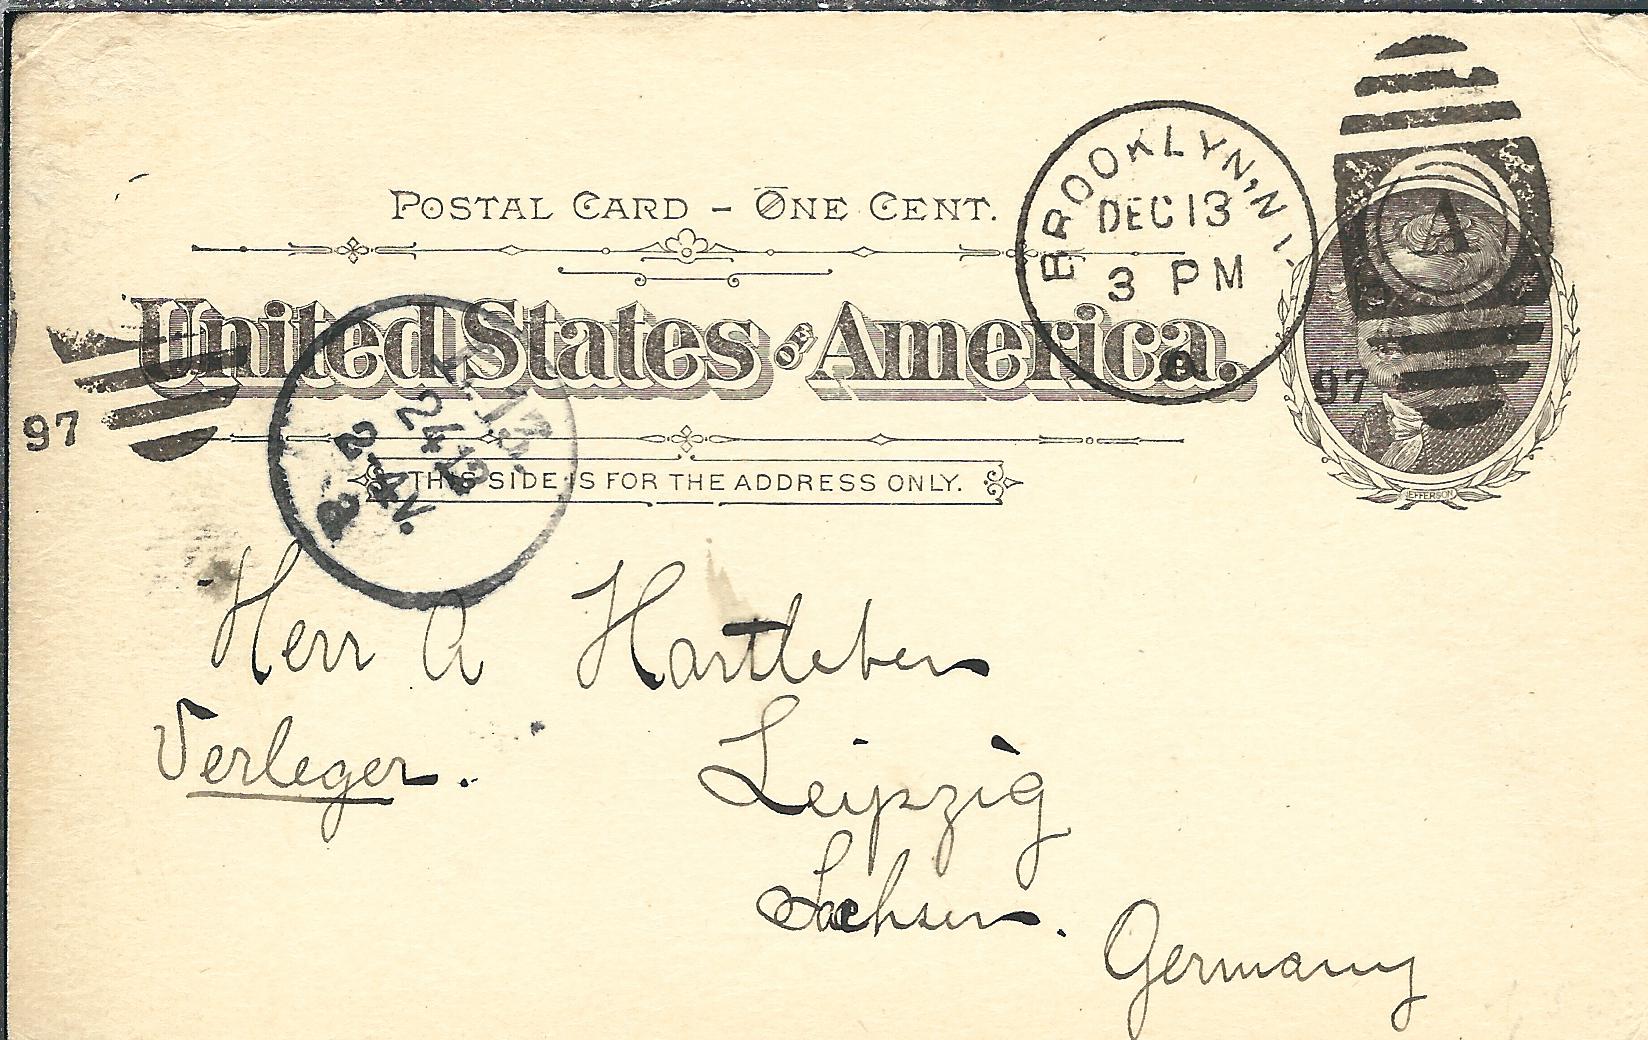 POSTAL CARD – ONE CENT.
United States OF America.
THIS SIDE IS FOR THE ADDRESS ONLY.
BROOKLYN, N.Y.
DEC 13
3 PM
A
97
JEFFERSON
97
24 12
2-4 N.
a
Herr A Hartleben
Verleger.
Leipzig
Sachsen.
Germany